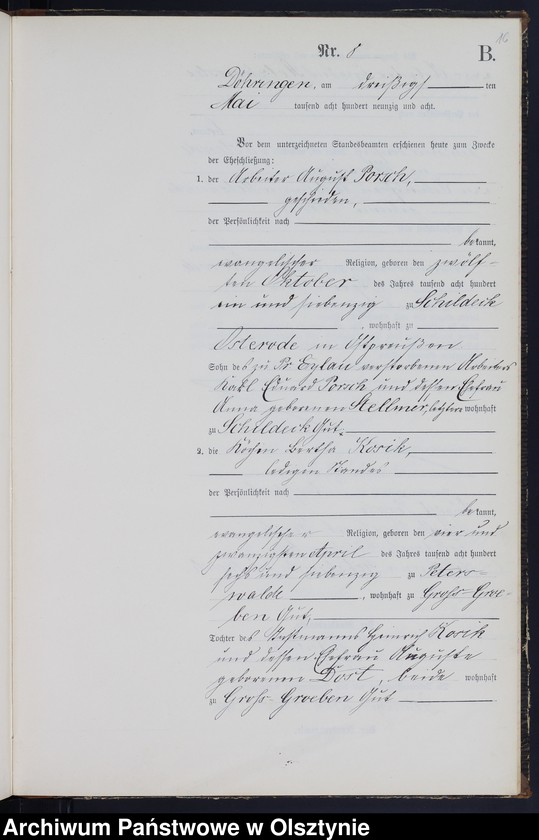 16
Nr. 8
B.
Döhringen, am dreißigsten
Mai tausend acht hundert neunzig und acht.
Vor dem unterzeichneten Standesbeamten erschienen heute zum Zwecke
der Eheschließung:
1. der Arbeiter August Porsch,
geschieden,
der Persönlichkeit nach
bekannt,
evangelischer Religion, geboren den zwölf-
ten Oktober des Jahres tausend acht hundert
ein und siebenzig zu Schildeck
, wohnhaft zu
Osterode in Ostpreußen
Sohn des zu Pr. Eylau verstorbenen Arbeiters
Karl Eduard Porsch und dessen Ehefrau
Anna geborenen Stellmer, letztere wohnhaft
zu Schildeck Gut.
2. die Köchin Bertha Kosik,
ledigen Standes
der Persönlichkeit nach
bekannt,
evangelischer Religion, geboren den vier und
zwanzigsten April des Jahres tausend acht hundert
sechs und siebenzig zu Peters-
walde, wohnhaft zu Groß-Groe-
ben Gut,
Tochter des Instmanns Heinrich Kosik
und dessen Ehefrau Auguste
geborenen Dost, beide wohnhaft
zu Groß-Groeben Gut
Archiwum Państwowe w Olsztynie